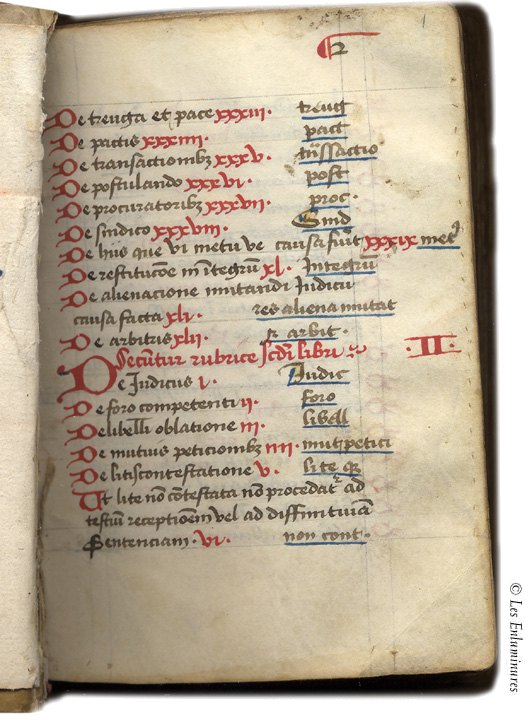 2
De treuga et pace xxxiii. treug
De pactis xxxiiii. pact
De transactionibz xxxv. transsactio
De postulando xxxvi. post
De procuratoribz xxxvii. proc.
De sindico xxxviii. Sind
De hiis que vi metu ve causa fuit xxxix met9
De restitucõe in ĩtegrũ xl. Integrũ
De alienacione mutandi Iudicii
causa facta xli. res aliena mutat
De arbitris xlii. arbit.
Secũtur rubrice scdi libri .II.
De Iudicius i. Iudic
De foro competenti ii. foro
De libelli oblatione iii. libell
De mutuis peticionibz iiii. mut petici
De litiscontestatione v. lite
Ut lite nõ cõtestata nõ procedat ad
testiũ receptioẽm vel ad diffinitiuã
Sentenciam. vi. non cont.
© Les Enluminures